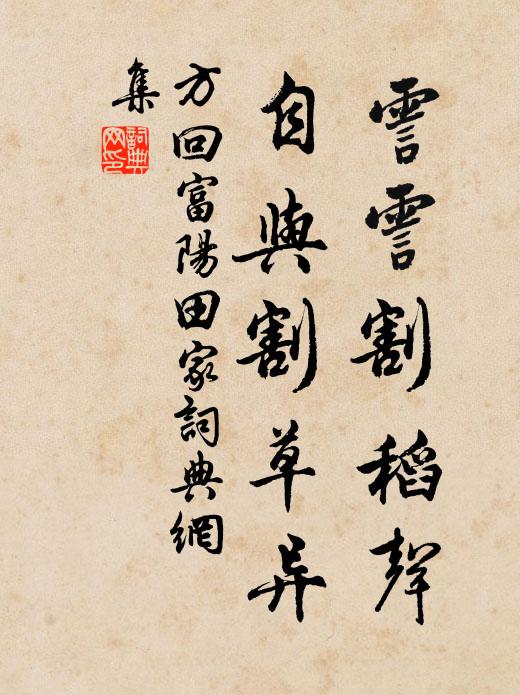 霅霅割稻聲
自與割草异
方回富陽田家詞典網
集
詞典
网印